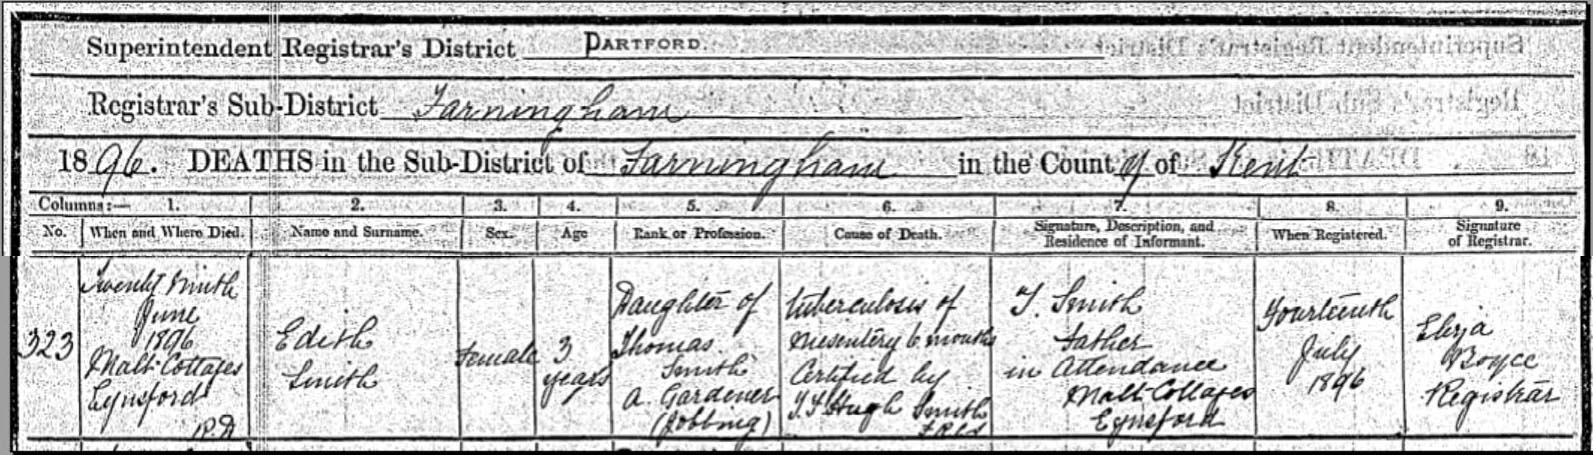 Superintendent Registrar's District DARTFORD.
Registrar's Sub-District Farningham
1896. DEATHS in the Sub-District of Farningham in the County of Kent
Columns:— 1. 2. 3. 4. 5. 6. 7. 8. 9.
No. When and Where Died. Name and Surname. Sex. Age Rank or Profession. Cause of Death. Signature, Description, and Residence of Informant. When Registered. Signature of Registrar.
323
Twenty Ninth
June
1896
Malt Cottages
Eynsford
R.D
Edith
Smith
Female
3
years
Daughter of
Thomas
Smith
a Gardener
(Jobbing)
Tuberculosis of
Mesentery 6 months
Certified by
Hugh Smith
T. Smith
Father
in Attendance
Malt Cottages
Eynsford
Fourteenth
July
1896
Eliza
Boyce
Registrar